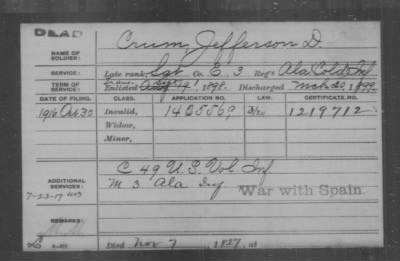 DEAD
NAME OF SOLDIER: Crum, Jefferson D.
SERVICE: Late rank, Sgt Co. E, 3 Reg't Ala Cold Inf
TERM OF SERVICE: Enlisted 1898. Discharged Mch 20, 1899
DATE OF FILING. CLASS. APPLICATION NO. LAW. CERTIFICATE NO.
1916 Oct 30 Invalid, 1425569 1219712
Widow,
Minor,
C 49 U.S. Vol. Inf
ADDITIONAL SERVICES: M 3 Ala Inf War with Spain
7-23-17
REMARKS:
Died Nov 7, 1927, at